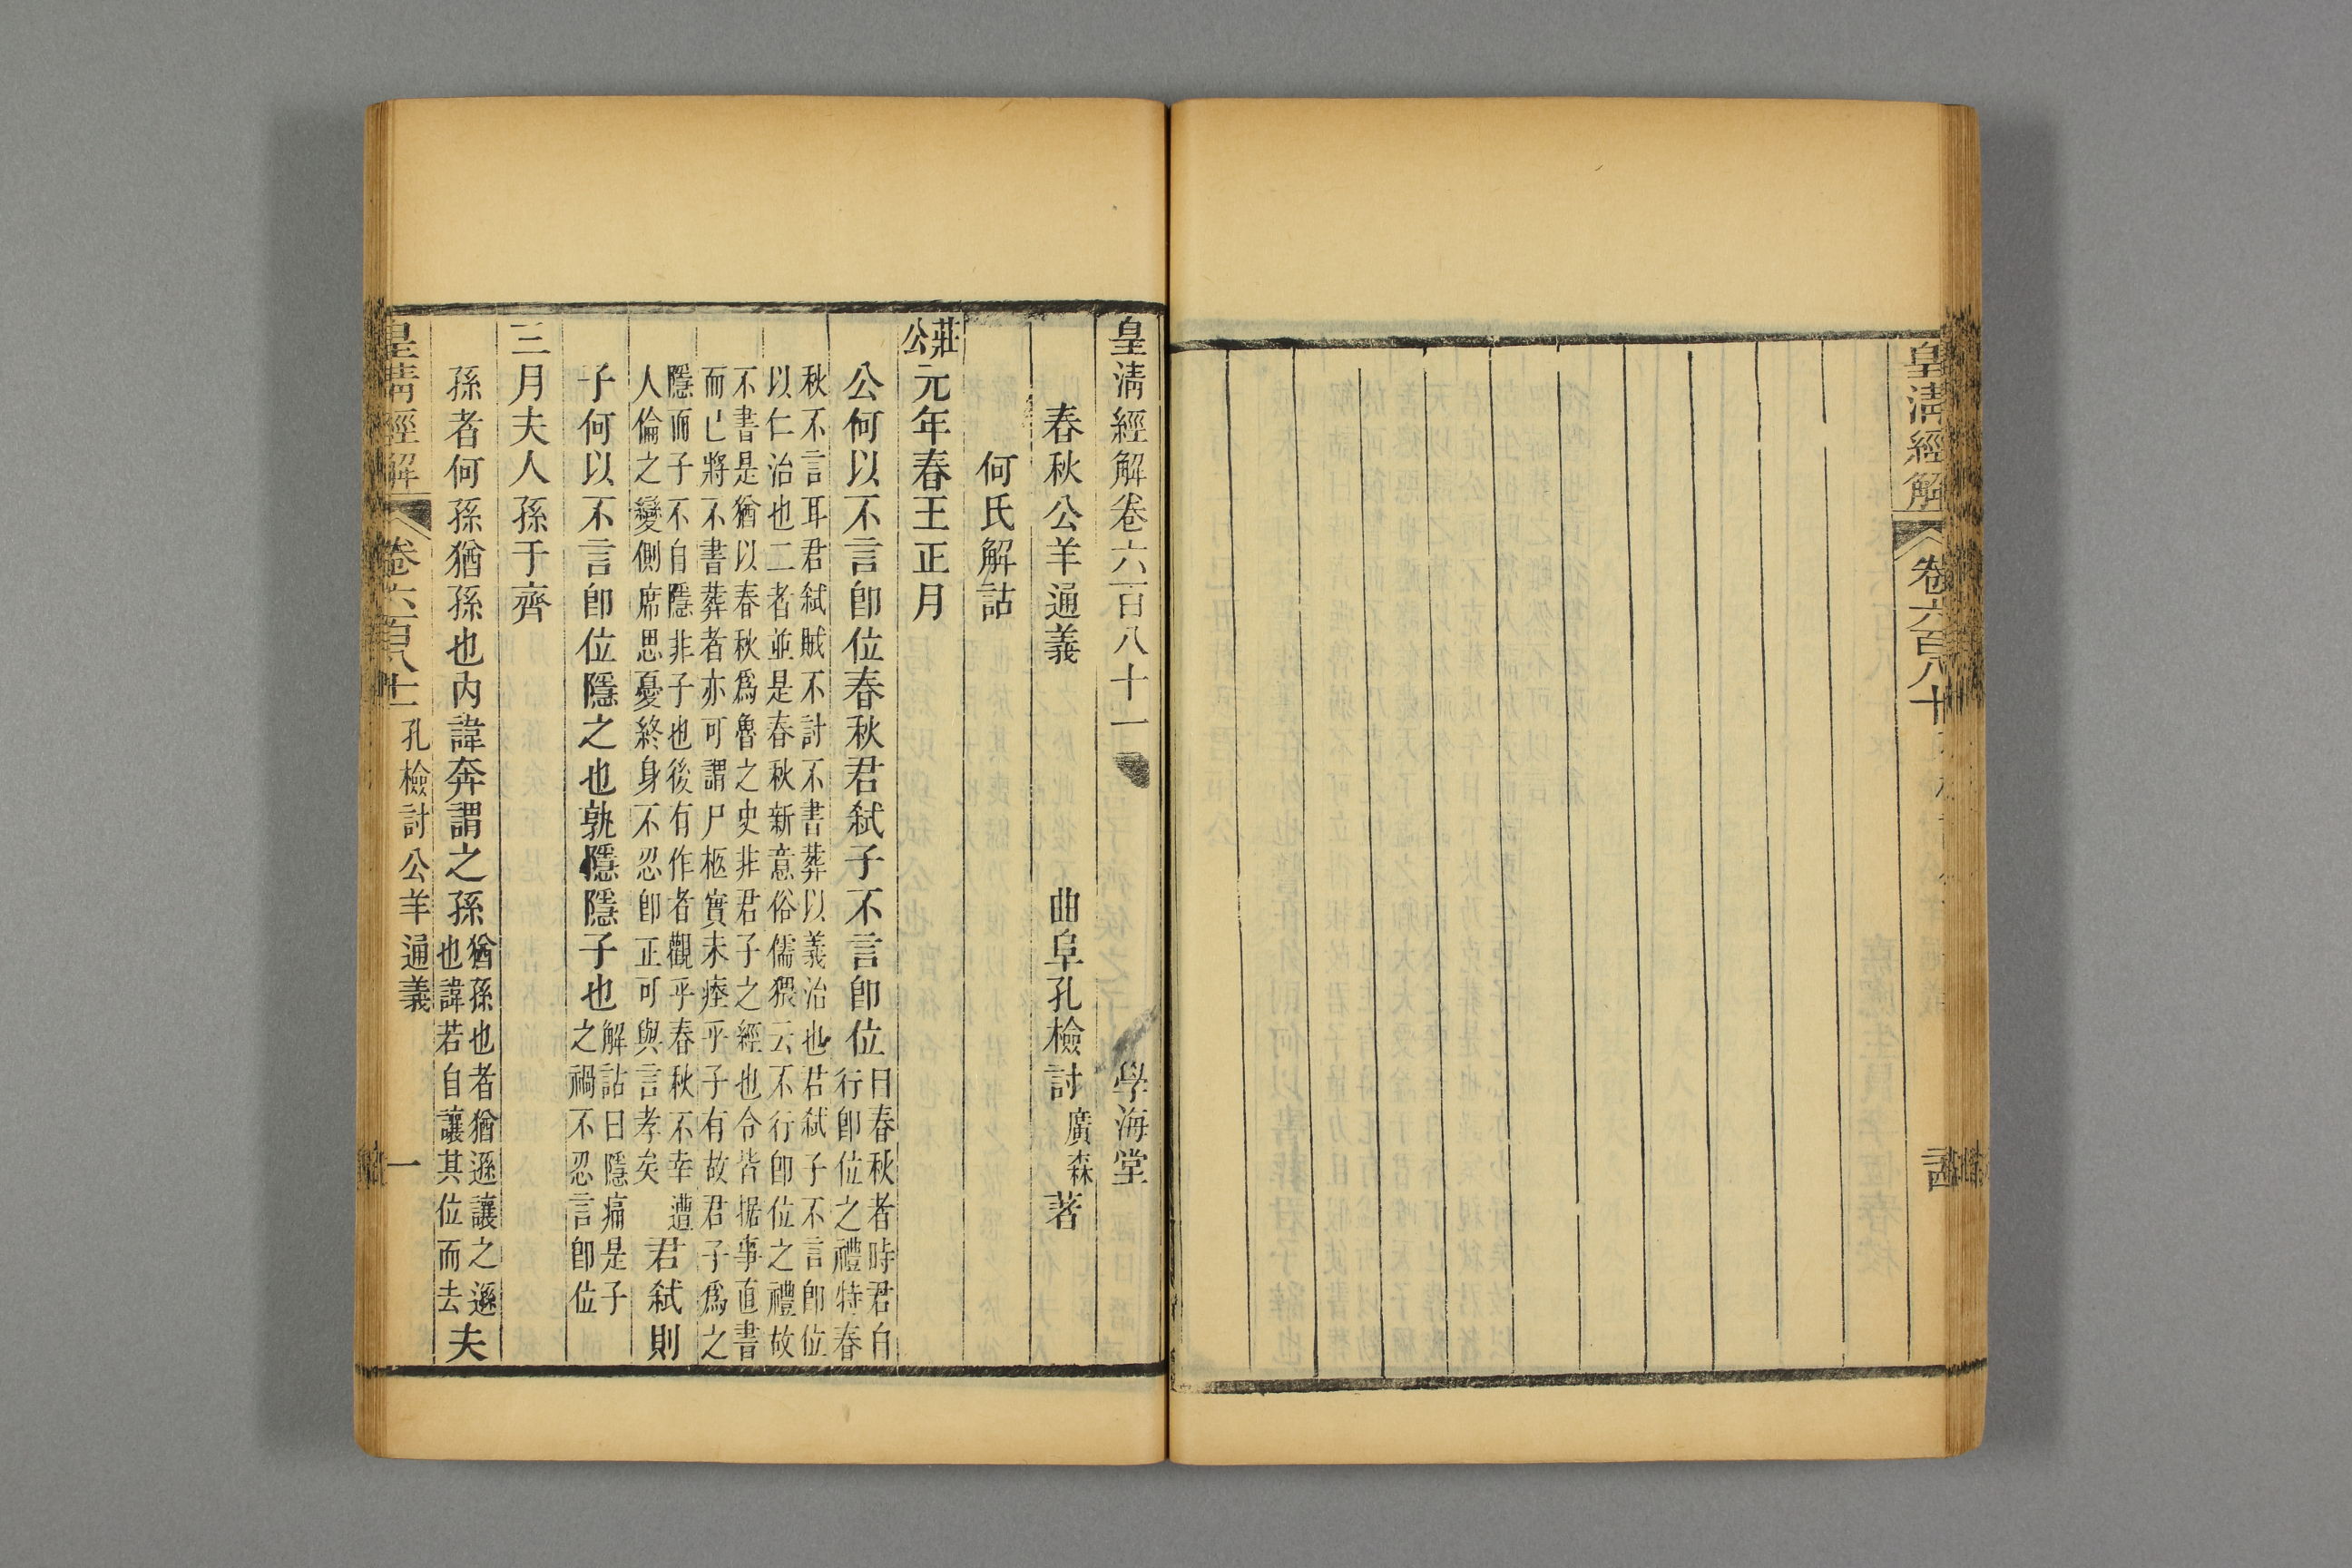 皇清經解 卷六百八十
皇清經解卷六百八十一 學海堂
春秋公羊通義 曲阜孔檢討廣森著
何氏解詁
莊公元年春王正月
公何以不言卽位春秋君弒子不言卽位日春秋者時君自行卽位之禮特春
秋不言耳君弒賊不討不書葬以義治也君弒子不言卽位以仁治也二者並是春秋新意俗儒猥云不行卽位之禮故
不書是猶以春秋爲魯之史非君子之經也令皆据事直書而已將不書葬者亦可謂尸柩實未瘞乎子有故君子爲之
隱而子不自隱非子也後有作者觀乎春秋不幸遭人倫之變側席思憂終身不忍卽正可與言孝矣君弒則
子何以不言卽位隱之也孰隱隱子也解詁曰隱痛是子之禍不忍言卽位
三月夫人孫于齊
孫者何孫猶孫也內諱奔謂之孫猶孫也者猶遜讓之遜也諱若自讓其位而去夫
皇清經解 卷六百八十一 孔檢討公羊通義 一